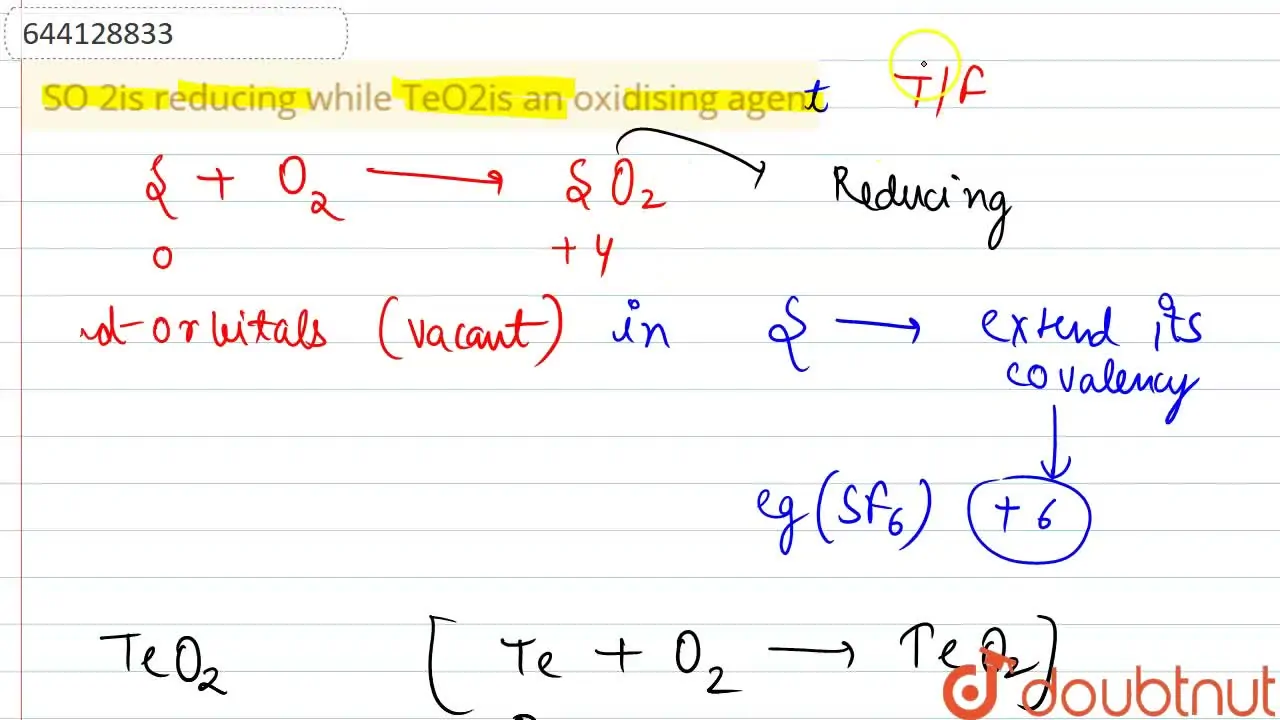 644128833
SO 2is reducing while TeO2is an oxidising agent T/F
S + O2 → SO2 Reducing
0 +4
d-orbitals (vacant) in S → extend its
covalency
eg (SF6) +6
TeO2 [Te + O2 → TeO2]
doubtnut